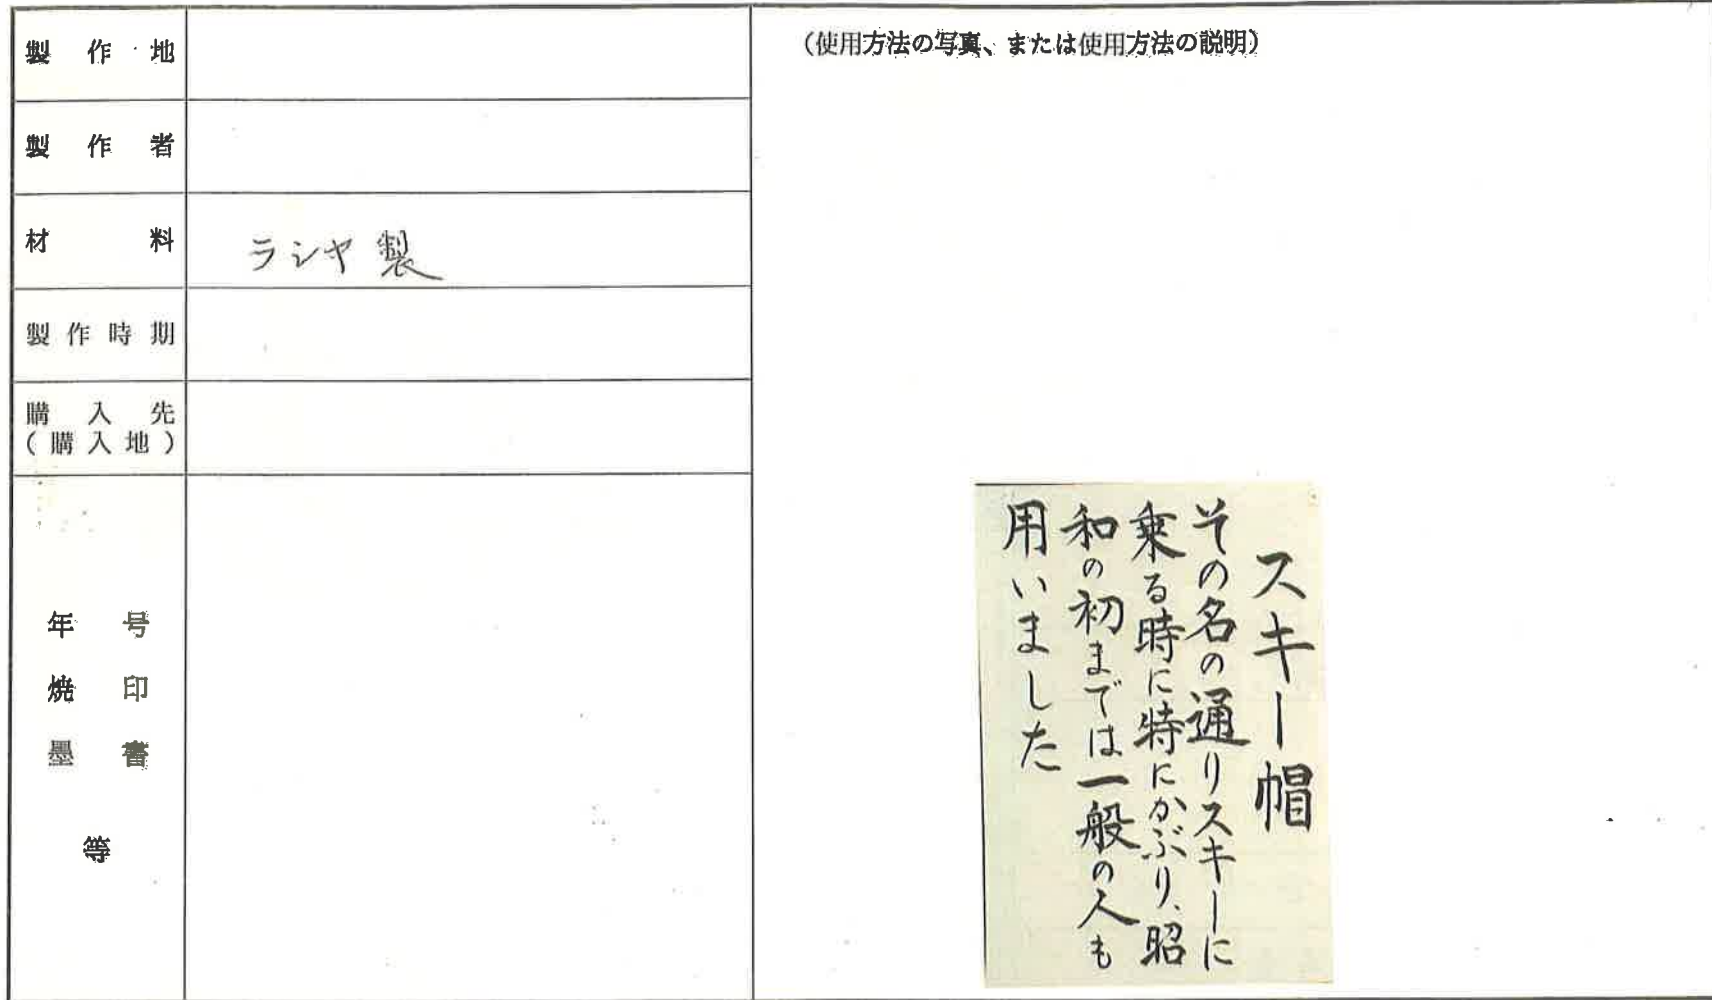 製作地
製作者
材料
ラシヤ製
製作時期
購入先
(購入地)
年号
焼印
墨書
等
(使用方法の写真、または使用方法の説明)
スキー帽
その名の通りスキーに
乗る時に特にかぶり、昭
和の初までは一般の人も
用いました